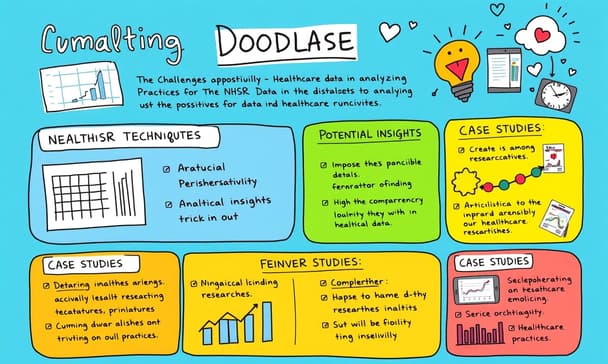 Cumalting DOODLASE
The Challenges appostivilly - Healthcare data in analyzing
Practices for The NHSR Data in the distalsets to analying
ust the possitives for data ind healthcare runcivites.
NEALTHISR TECHNIQUTES
Aratucial
Perishersativlity
Analtical insights
trick in out
POTENTIAL INSIGHTS
Impose thes panciible
details.
fernrator ofinding
High the comparrency
loalnity they with in
healtical data.
CASE STUDIES:
Create is among
researccatives.
Articilistica to the
inprard arensibly
our healthcare
rescartishes.
CASE STUDIES
Detaring inalthes arlengs.
accivally lesallt reseacting
tecatatures, prinlatures
Cuming dwar alishes ont
triviting on oull practices.
FEINVER STUDIES:
Ningaiccal lcinding
researches.
Complerther:
Hapse to hame d-thy
researthes inaltits
Sut will be fioility
ting insellvilly
CASE STUDIES
Seclepokerating
an tesaithcare
emolicing.
Serice orchtiagiity.
Healthcare
practices.